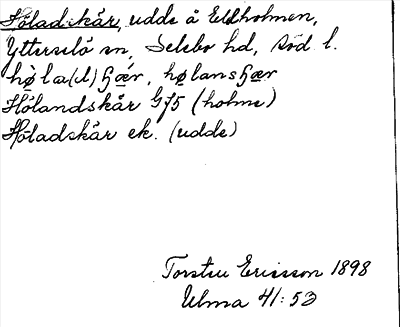 Höladskär, udde å Eldholmen,
Ytterselö sn, Selebo hd, Söd l.
hø̱la(d)ʃæ̱r, hø̱lansʃæ̱r
Hölandskär G75 (holme)
Höladskär ek. (udde)
Torsten Ericsson 1898
Ulma 41:53